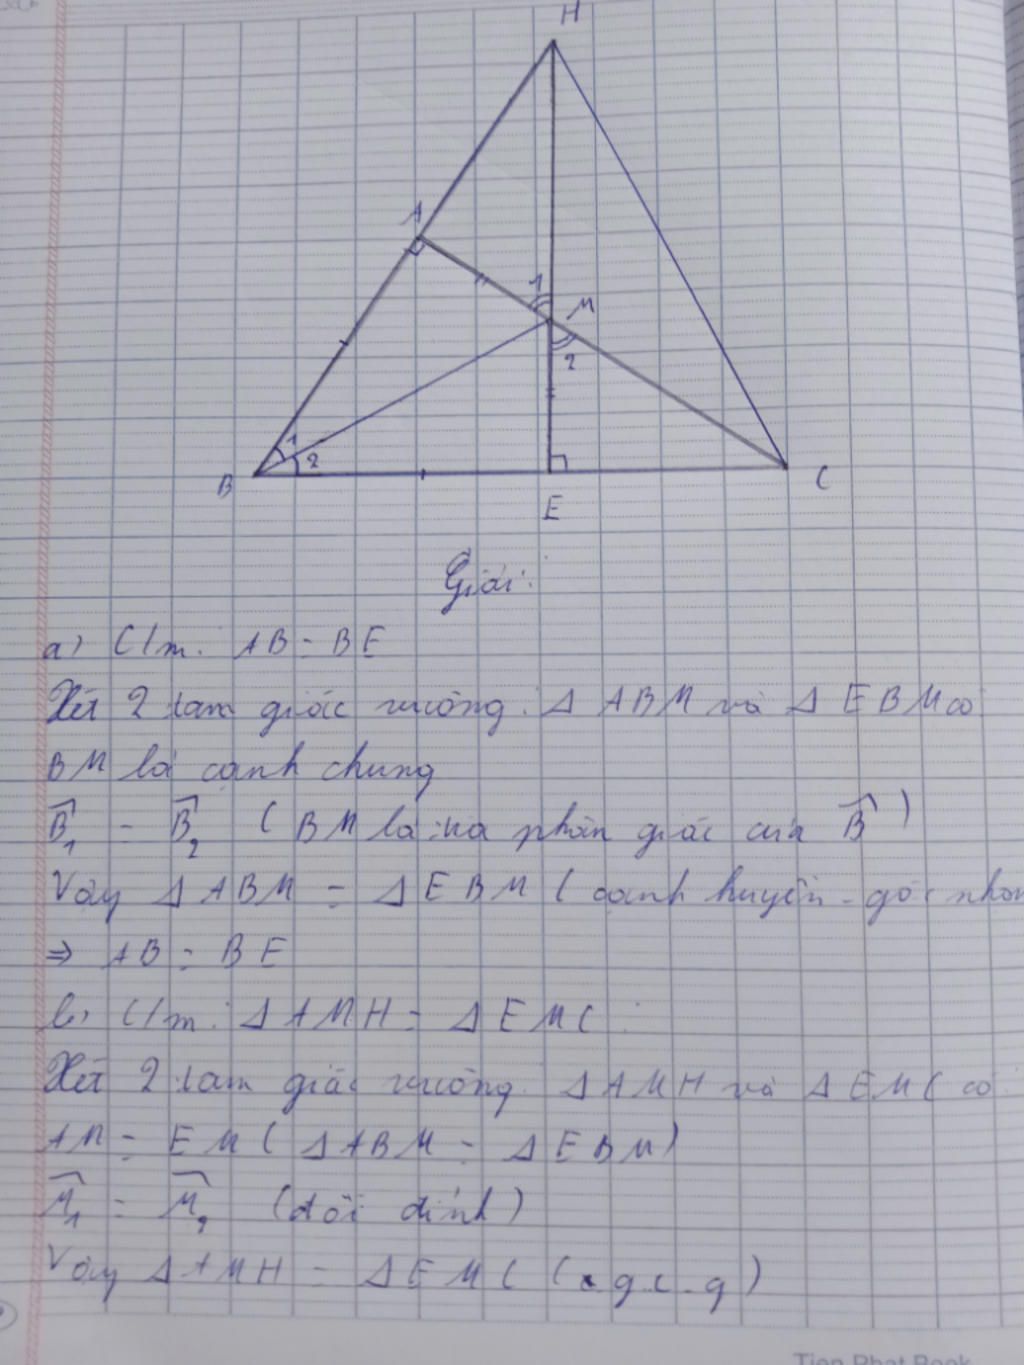 H
A
1
M
2
1
2
B
C
E
Giải:
a) C/m: AB = BE
Xét 2 tam giác vuông: Δ ABM và Δ EBM có
BM là cạnh chung
B̂₁ = B̂₂ (BM là tia phân giác của B̂)
Vậy Δ ABM = Δ EBM (cạnh huyền - góc nhọn
⇒ AB = BE
b) C/m: Δ AMH = Δ EMC:
Xét 2 tam giác vuông: Δ AMH và Δ EMC có:
AM = EM (Δ ABM = Δ EBM)
M̂₁ = M̂₂ (đối đỉnh)
Vậy Δ AMH = Δ EMC (g.c.g)
Tien Phat Book